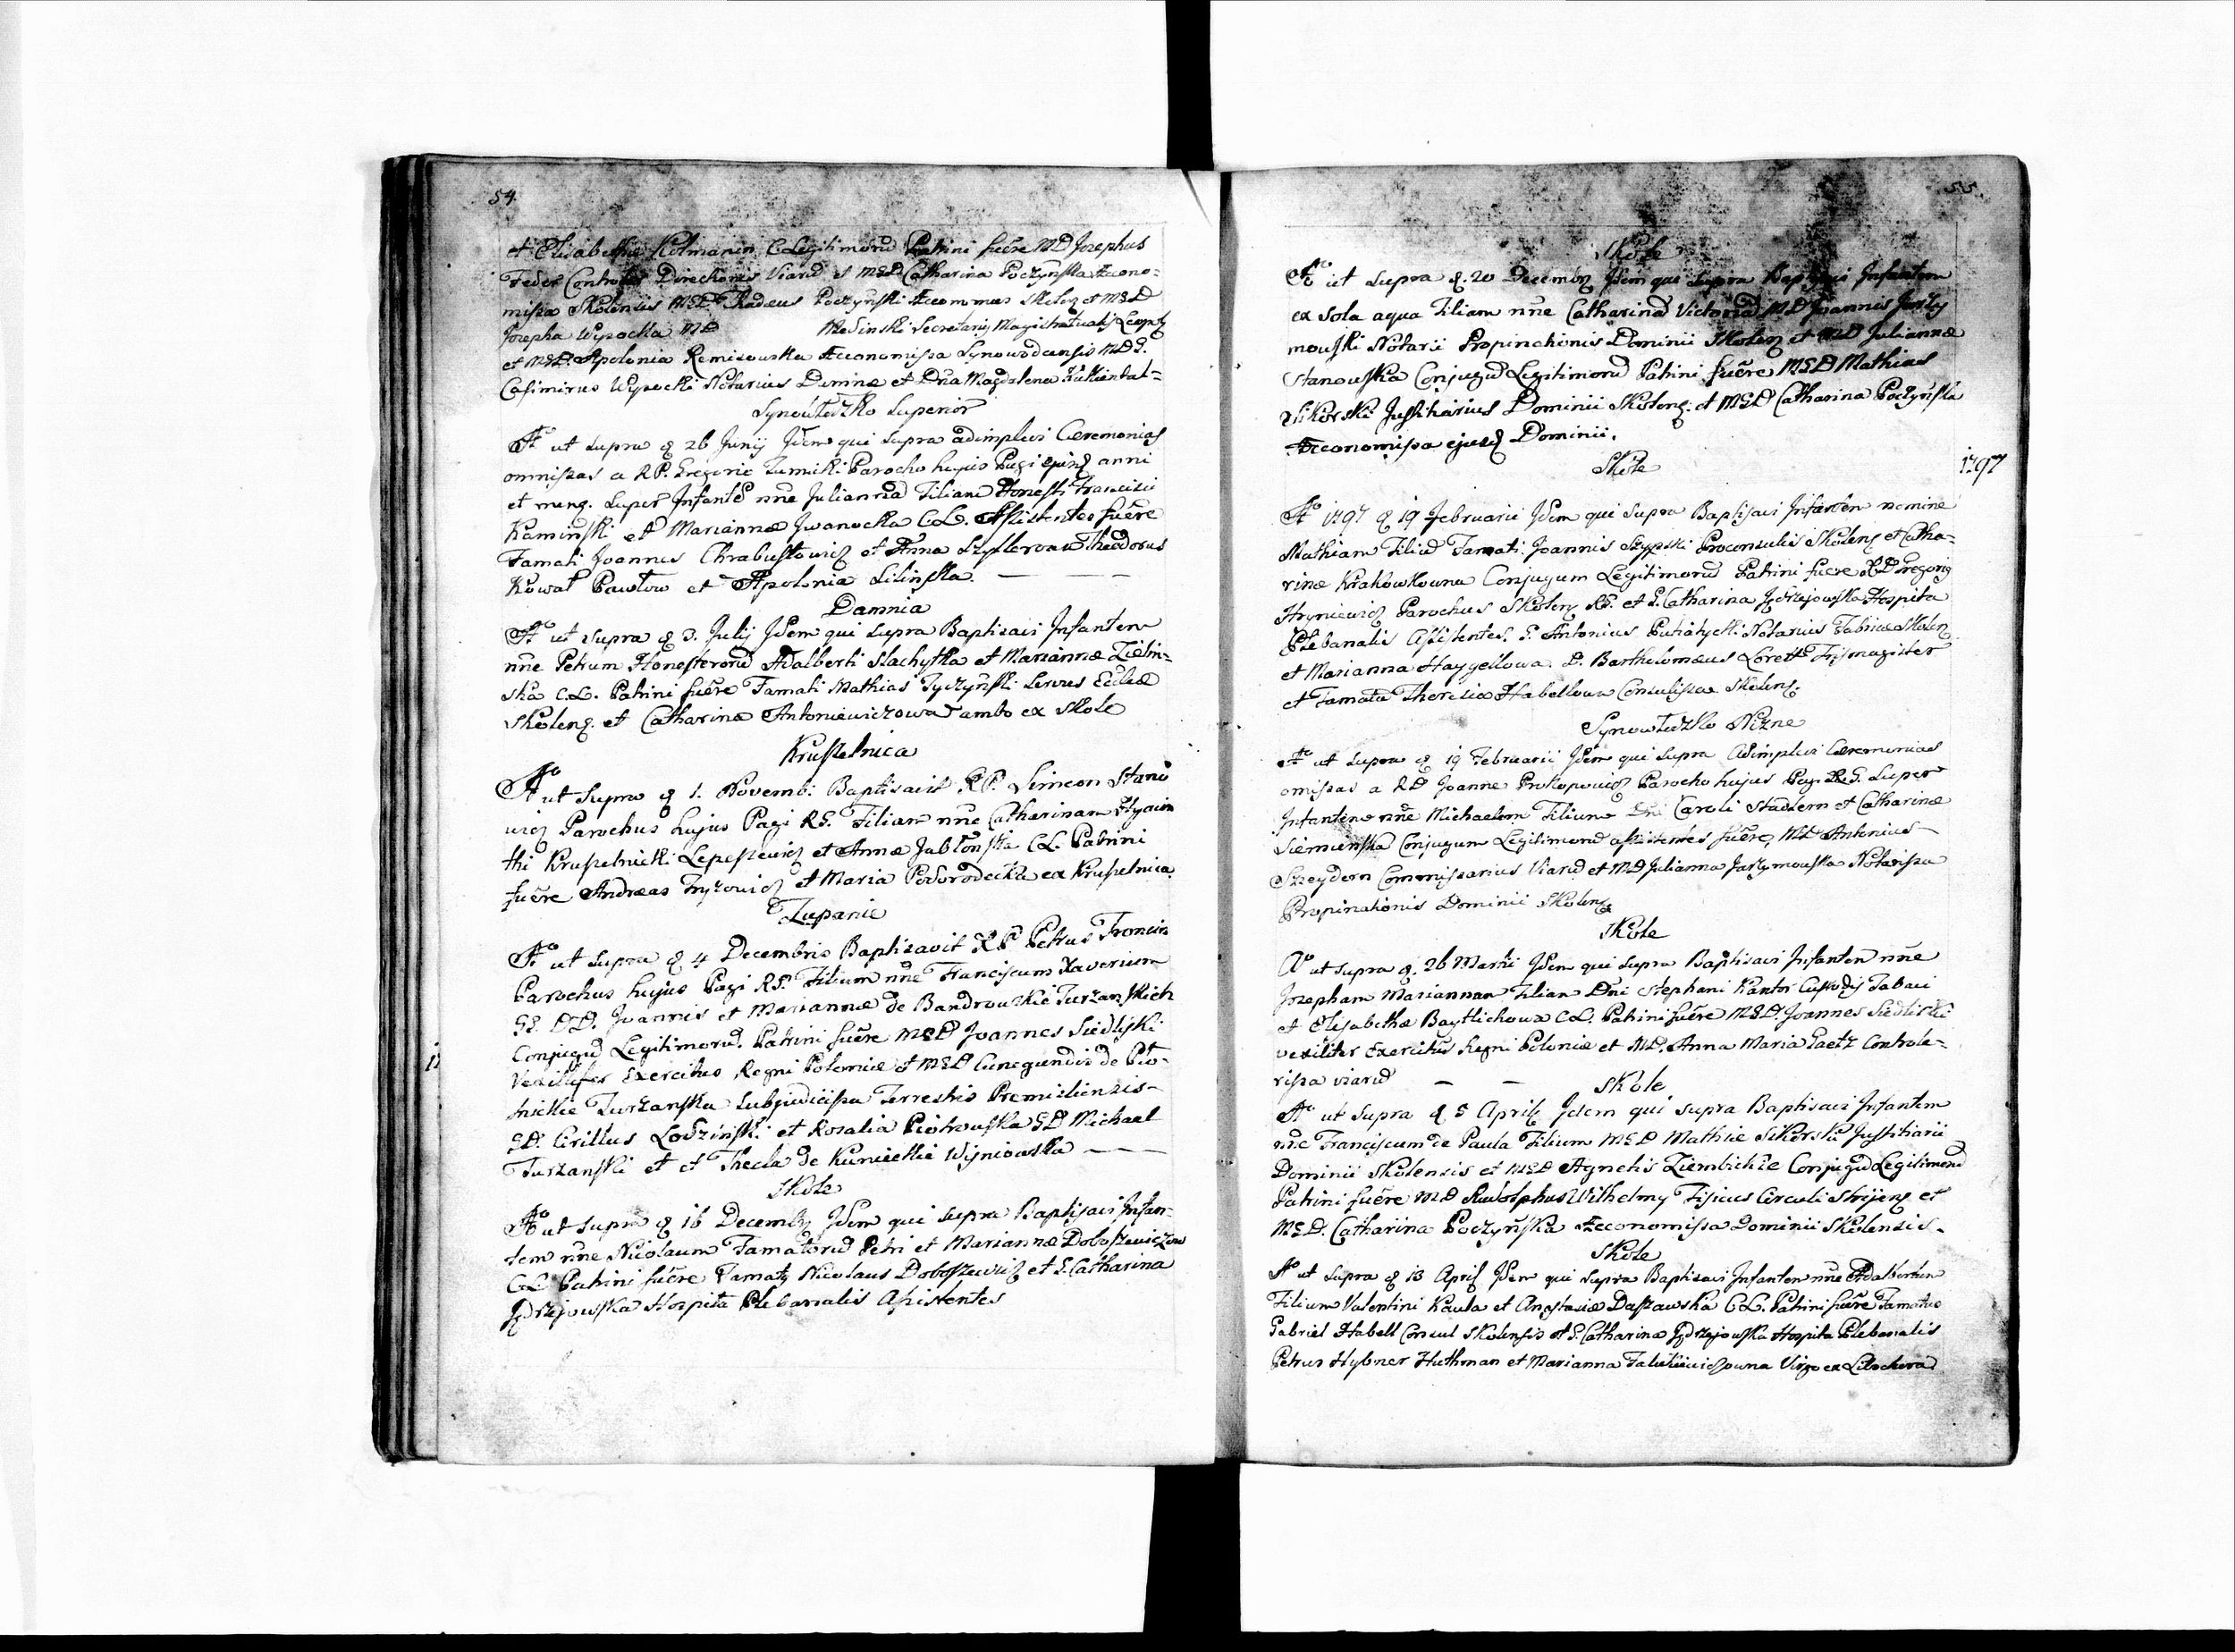 54.
et Elisabethæ Kolmanin C. Legitimorũ Patrini fuêre MD Josephus
Feder Controlor Directionis Viarũ et MGD Catharina Poczyńska Æcono=
missa Skolensis MGD. Thadæus Poczyński Æconomus Skolen et MGD
Josepha Wysocka MD Medinski Secretariy Magistratualiy
et MGD. Apolonia Remisowska Æconomissa Synowodcensis MDG.
Casimirus Wysocki Notarius Deminæ et Dña Magdalena
Synowudzko Superior
Aº ut supra d 26 Junij Idem qui supra adimplevi Ceremonias
omnissas a RP. Gregorio Tumicki Parocho hujus Pagi ejusd anni
et meng. super Infantẽ nñe Juliannã Filiam Honesti Francisci
Kaminski et Mariannæ Iwanocka C.L. Assistentes fuêre
Famati Joannes Chrabustowicz et Anna Szyslerowa Theodorus
Kowal Pawlow et Apolonia Lilinska. — —
Damnia
Aº ut supra d 3. Julij Idem qui supra Baptisavi Infantem
nñe Petrum Honestorũ Adalberti Slachytka et Mariannæ Zielin=
ska C.L. Patrini fuêre Famati Mathias Tyczyński Servus Eccliæ
Skoleng. et Catharina Antoniewiczowa ambo ex Skole
Kruszelnica
Aº ut supra d 1. Novemb: Baptisavit RP. Simeon Stano
wicz Parochus hujus Pagi RG. Filiam nñe Catharinam Hyacin
thi Kruszelnicki Lepeszewicz et Annæ Jabłońska C.L. Patrini
fuêre Andreas Fryzowicz et Maria Podorodecka ex Kruszelnica
Zupanie
Aº ut supra d 4 Decembris Baptisavit RP Petrus Froncis
Parochus hujus Pagi RG. Filium nñe Franciscum Xaverium
GG. DD. Joannis et Mariannæ de Bandrowskie Turzanskich
Conjugũ Legitimorũ. Patrini fuêre MGD Joannes Siedliski
Vexillifer Exercitus Regni Poloniæ et MGD Cunegundis de Pio-
Turzanska Subjudicissa Terrestris Premisliensis-
GD. Cirillus Lodziński et Rosalia Piotrowska GD Michael
Turzanski et et Thecla de Kunickie Wisniowska — —
Skole
Aº ut supra d 16 Decembr Idem qui supra Baptisavi Infan-
tem nñe Nicolaum Famatorũ Petri et Mariannæ Doboszewiczow
C.L. Patrini fuêre Famaty Nicolaus Doboszewicz et G. Catharina
Jędrzejowska Hospita Plebanalis Assistentes
55.
Skole
Aº ut supra d. 20 Decembr Idem qui supra Baptisavi Infantem
ex sola aqua Filiam nñe Catharinã Victoriã MD Joannis Jarzy
mowski Notarii Propinationis Dominii Skolen et MD Juliannæ
Stanowska Conjugũ Legitimorũ Patrini fuêre MGD Mathias
Sikorski Justitiarius Dominii Skoleng. et MGD Catharina Poczyńska
Æconomissa ejusd Dominii.
Skole
1797
Aº 1797 d 19 Februarii Idem qui supra Baptisavi Infantem nomine
Mathiam Filiũ Famati Joannis Szypski Proconsulis Skoleng et Catha-
rinæ Krakowkowna Conjugum Legitimorũ Patrini fuêre RD Gregoriy
Hryniewicz Parochus Skoleng RG. et G. Catharina Jędrzejowska Hospita
Plebanalis Assistentes. G. Antonius Putiatycki Notarius Fabricæ Skolen
et Marianna Haygellowa. D. Bartholomæus Lorett Frysmagister
et Famata Theresia Habellowa Consulissa Skoleng.
Synowudzko Nizne
Aº ut supra d 19 Februarii Idem qui supra Adimplevi Ceremonias
omissas a RD Joanne Prokopowicz Parocho hujus Pagi RG. super
Infantem nñe Michaelem Filium Dni Caroli Stadlern et Catharinæ
Siemienska Conjugum Legitimorũ assistentes fuêre, MD Antonius-
Szneydern Commissarius Viarũ et MD Julianna Jarzymowska Notarissa
Propinationis Dominii Skoleng.
Skole
Aº ut supra d. 26 Martii Idem qui supra Baptisavi Infantem nñe
Josepham Mariannam Filiam Dñi Stephani Kantor Custodiy Tabaci
et Elisabethæ Baytlichowa C.L. Patrini fuêre MGD. Joannes Siedliski
vexilifer Exercitus Regni Poloniæ et MD. Anna Maria Gaetz Controle=
rissa viarũ — —
Skole
Aº ut supra d 5 Aprilg Idem qui supra Baptisavi Infantem
nñe Franciscum de Paula Filium MGD Mathiæ Sikorski Justitiarii
Dominii Skolensis et MGD Agnetis Ziembickie Conjugũ Legitimorũ
Patrini fuêre MD Rudolphus Wilhelmy Fisicus Circuli Stryjeng et
MGD. Catharina Poczyńska Æconomissa Dominii Skolensis-
Skole
Aº ut supra d 13 Aprilg Idem qui supra Baptisavi Infantem nñe Adalbertum
Filium Valentini Kaula et Anastasiæ Daszawska C.L. Patrini fuêre Famatus
Gabriel Habell Consul Skolensis et G. Catharina Jędrzejowska Hospita Plebanalis
Petrus Hybner Huthman et Marianna Virgo ex Libochora